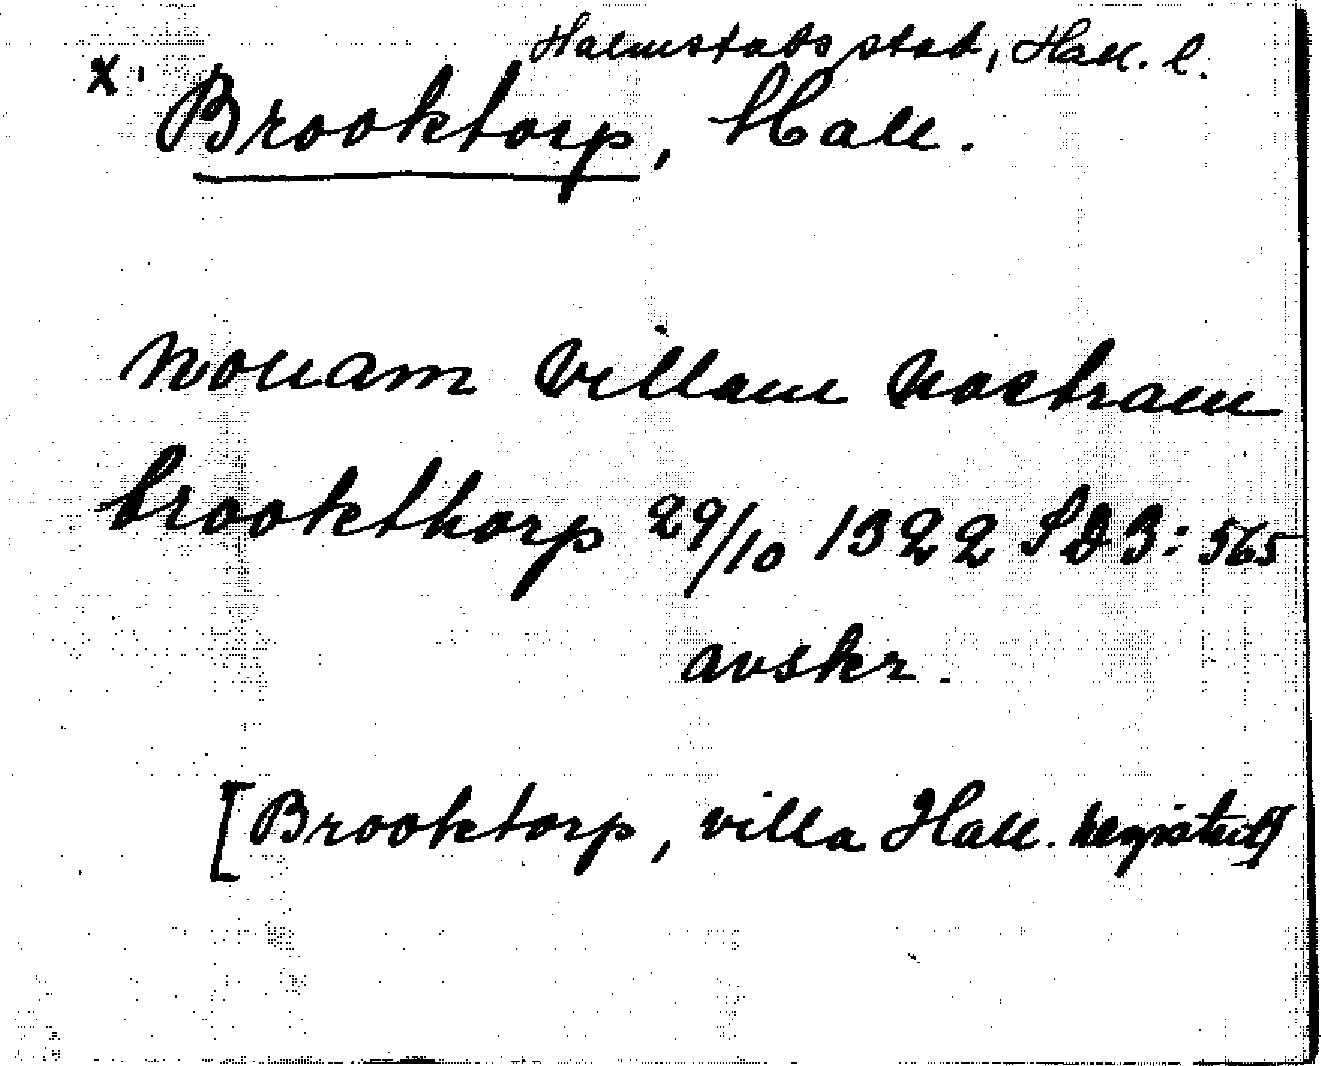 Halmstads stad, Hall. l.
x. Brooktorp, Hall.
Nouam Villam Nostram
brookthorp 29/10 1322 SD 3: 565
avskr.
[Brooktorp, villa Hall. registret]